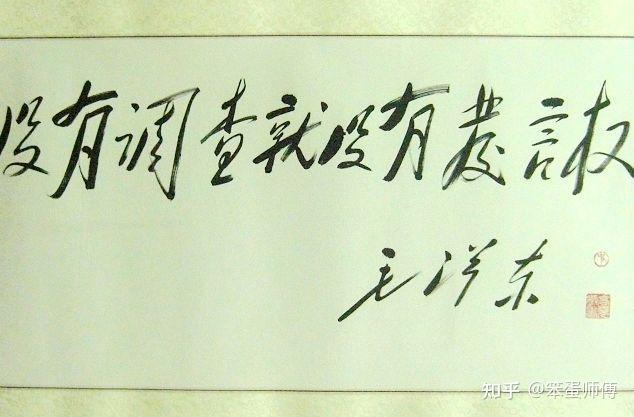 没有调查就没有發言权
毛泽东
知乎 @笨蛋师傅